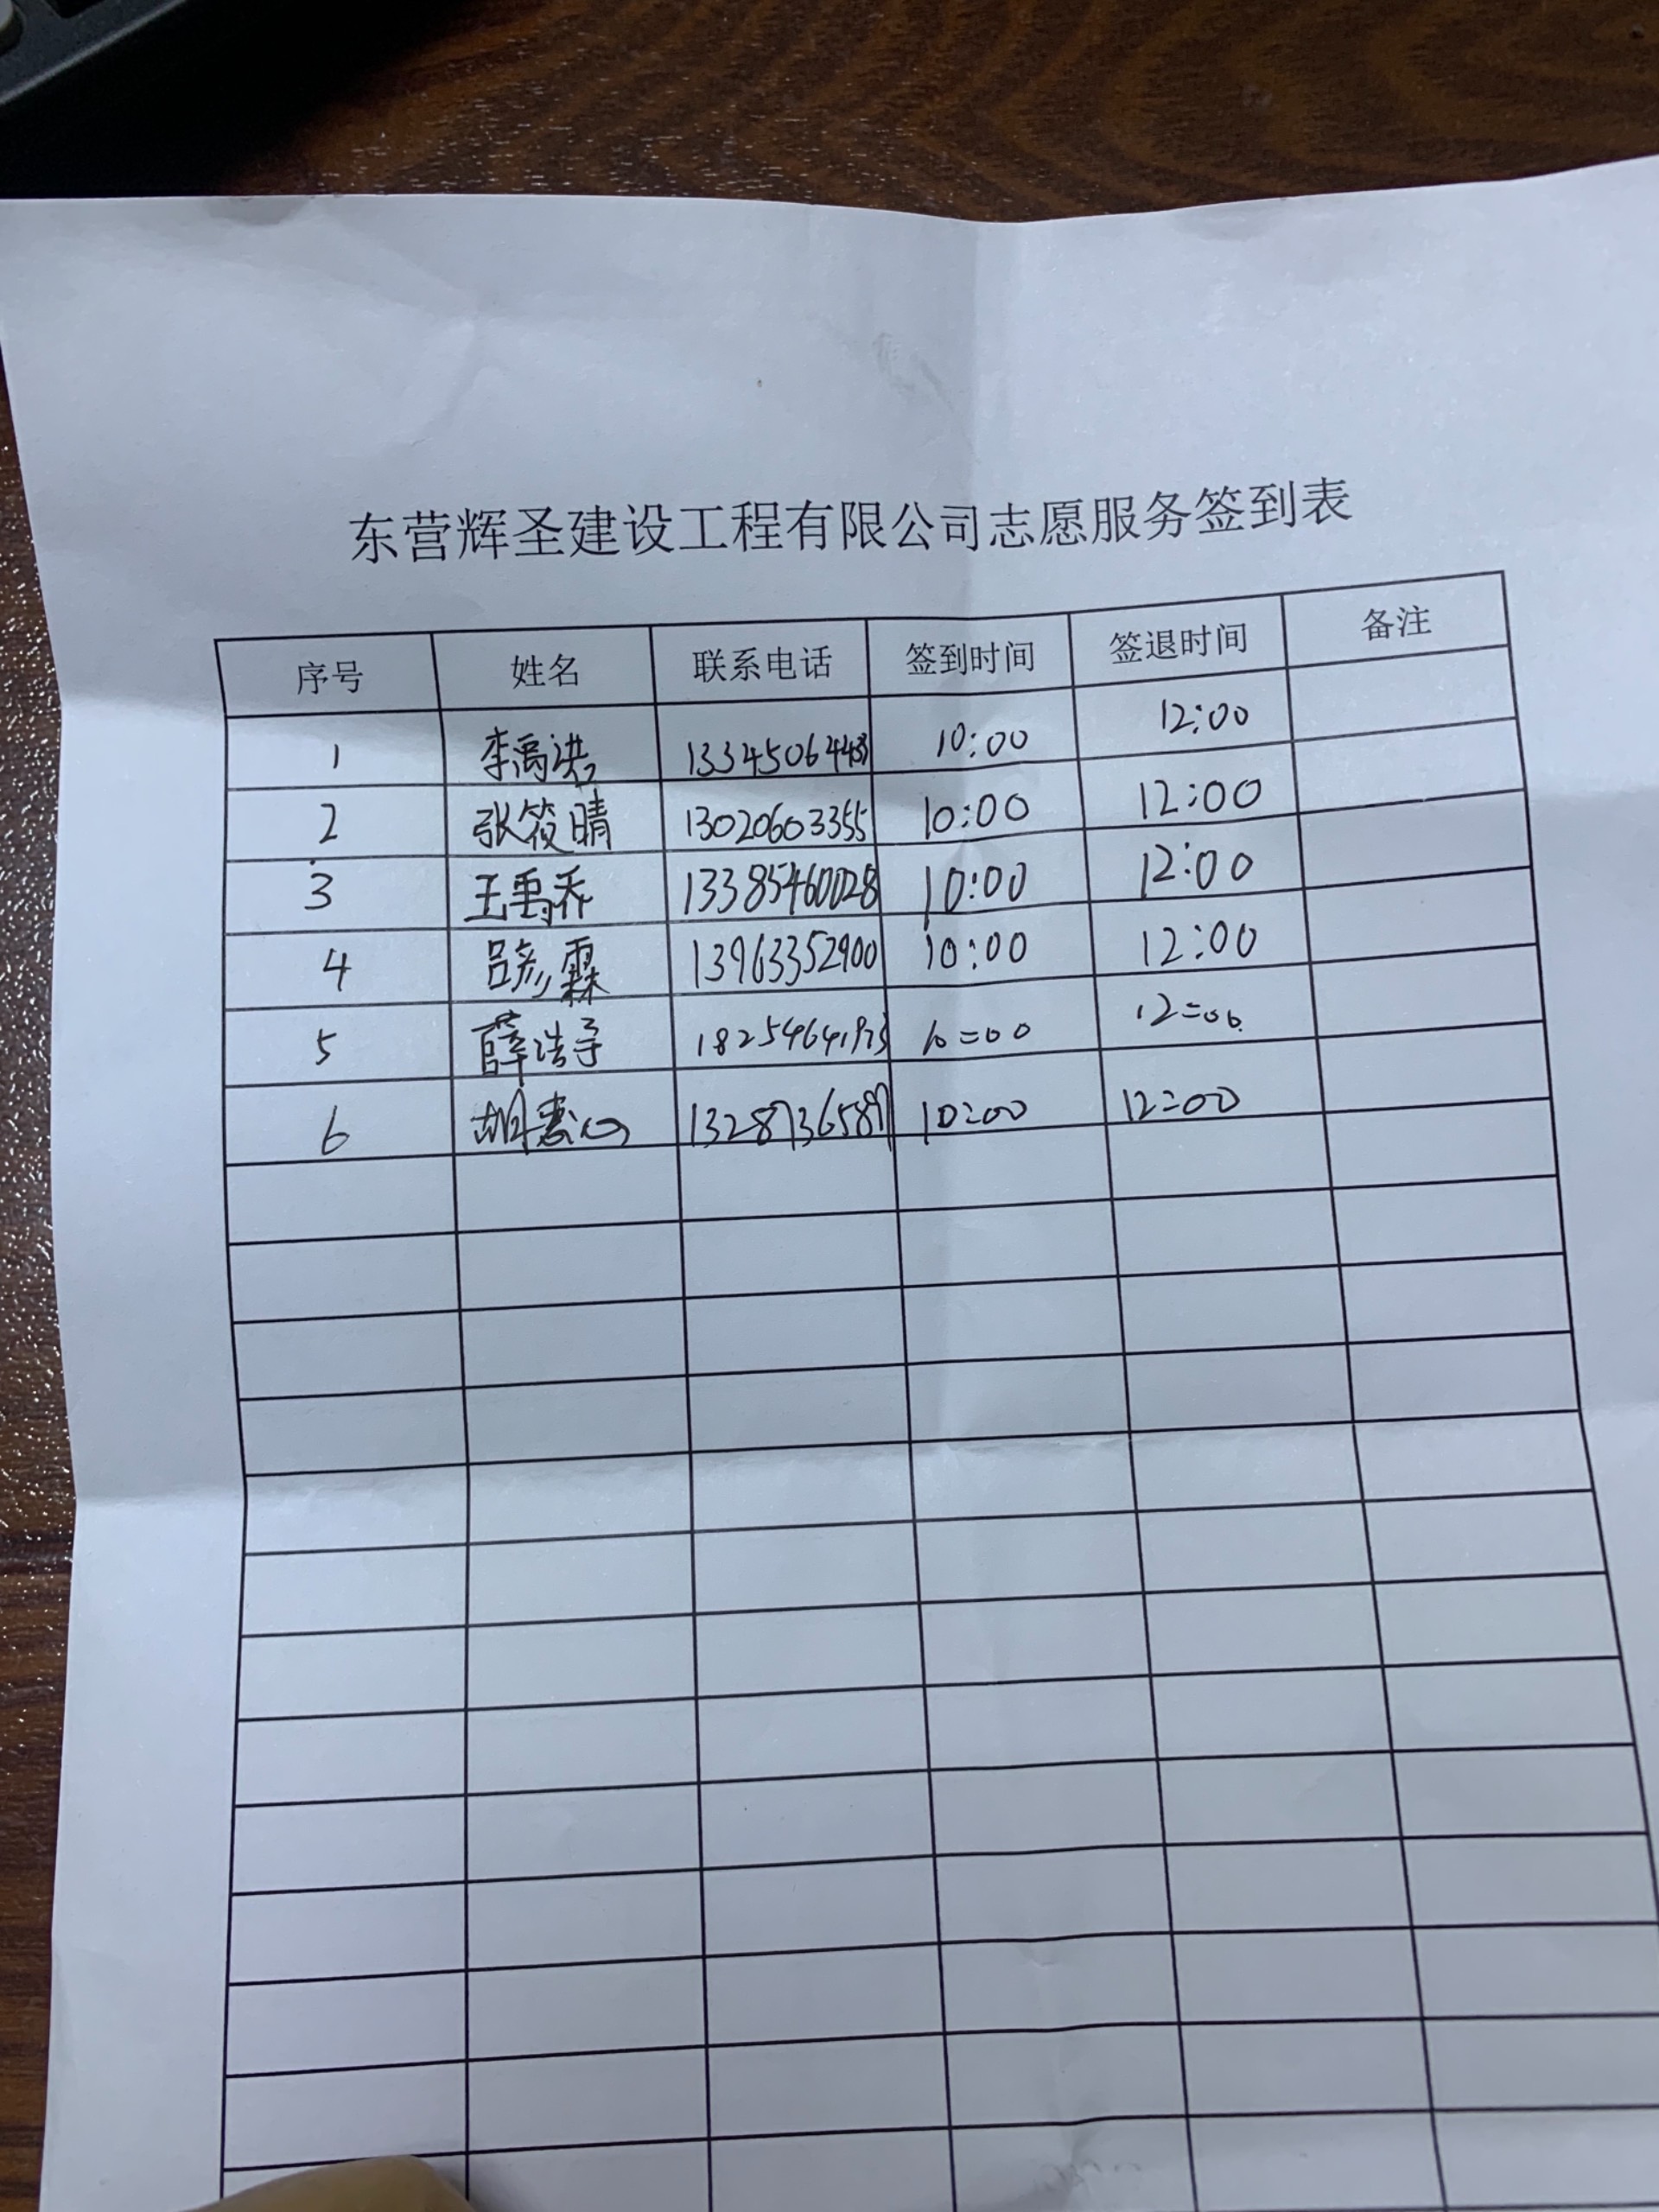 东营辉圣建设工程有限公司志愿服务签到表
序号 姓名 联系电话 签到时间 签退时间 备注
1 李禹洪 10:00 12:00
2 张筱晴 13020603355 10:00 12:00
3 王禹乔 13385460028 10:00 12:00
4 吕彦霖 13963352900 10:00 12:00
5 薛浩宇 10:00 12:00
6 胡惠心 10:00 12:00